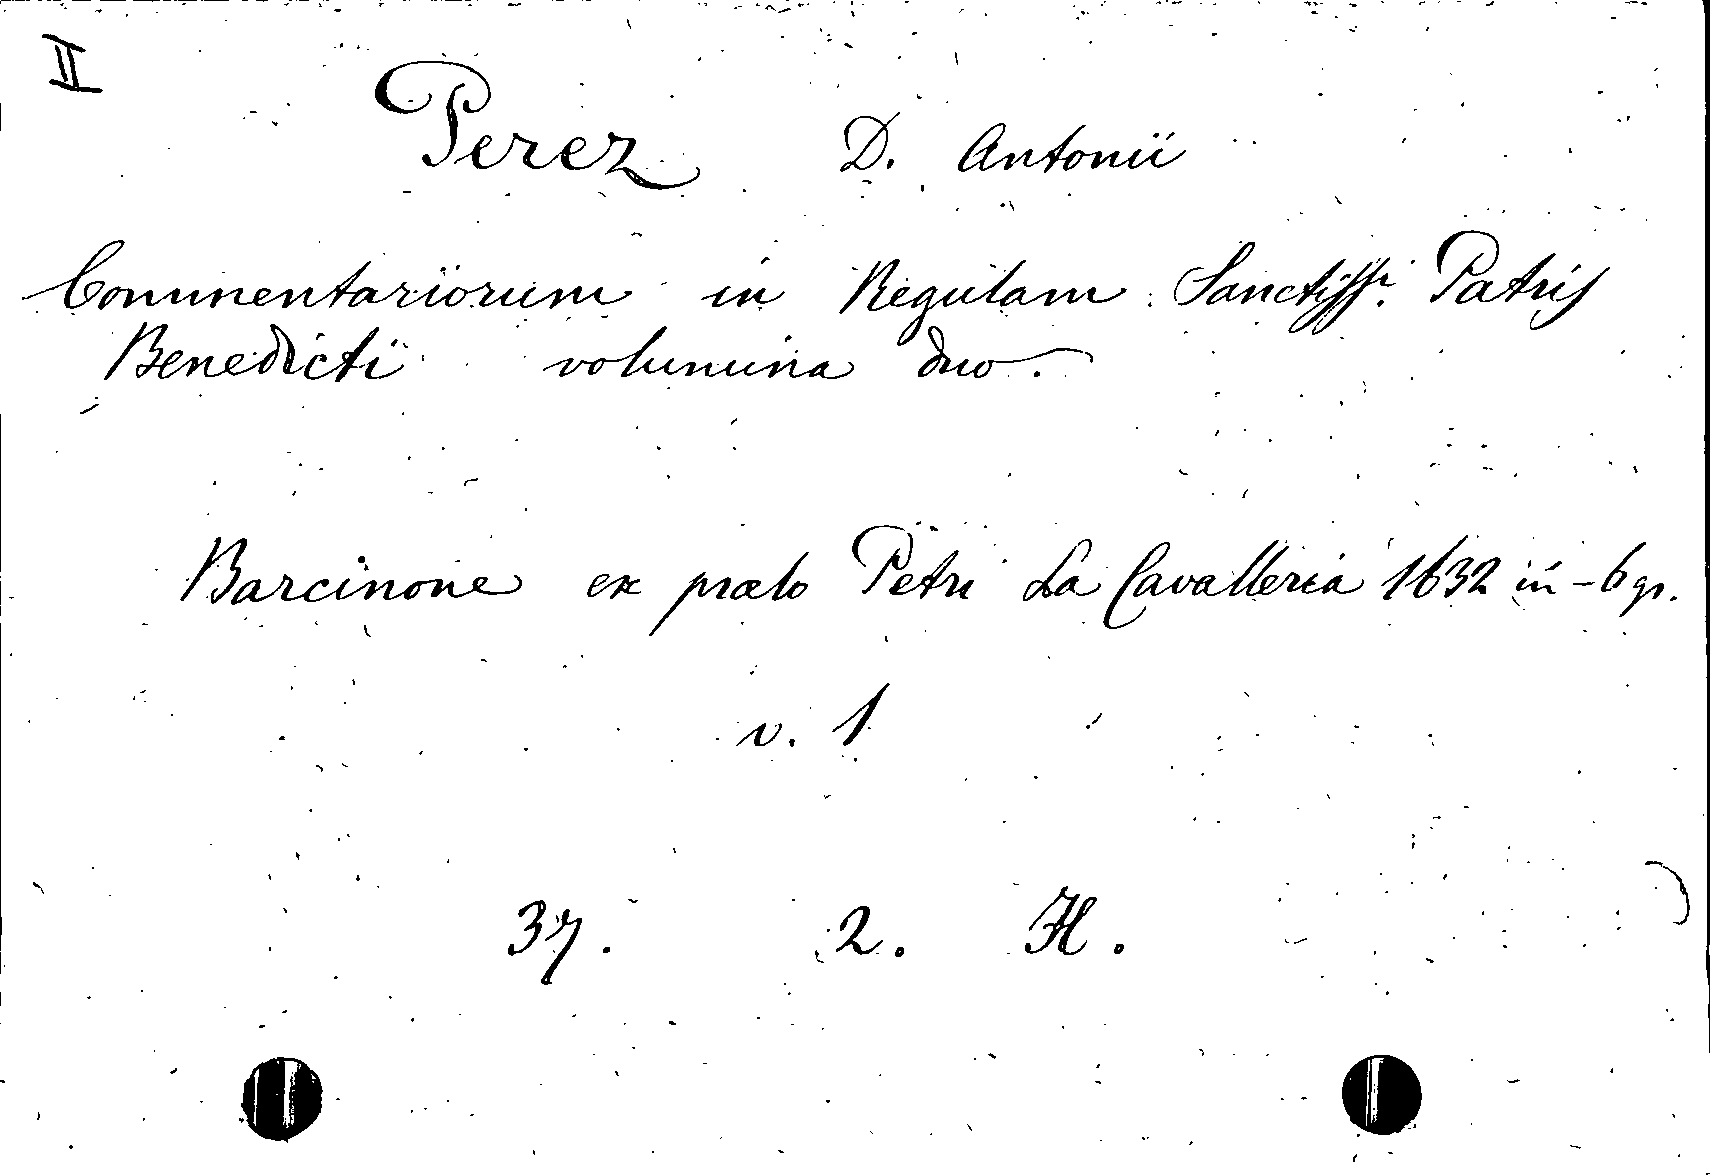 II
Perez D. Antonii
Commentariorum in Regulam Sanctissi. Patris
Benedicti volumina duo.
Barcinone ex prælo Petri La Cavalleria 1632 in-6 gr.
v. 1
37. 2. H.